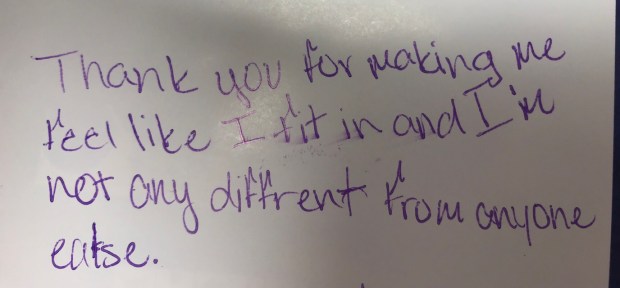 Thank you for making me
feel like I fit in and I'm
not any diffrent from anyone
eatse.